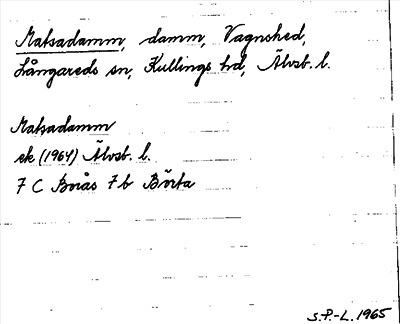 Matsadamm, damm, Vagnshed,
Långareds sn, Kullings hd, Älvsb. l.
Matsadamm
ek (1964) Älvsb. l.
7 C Borås 7 b Börta
S.P.-L. 1965